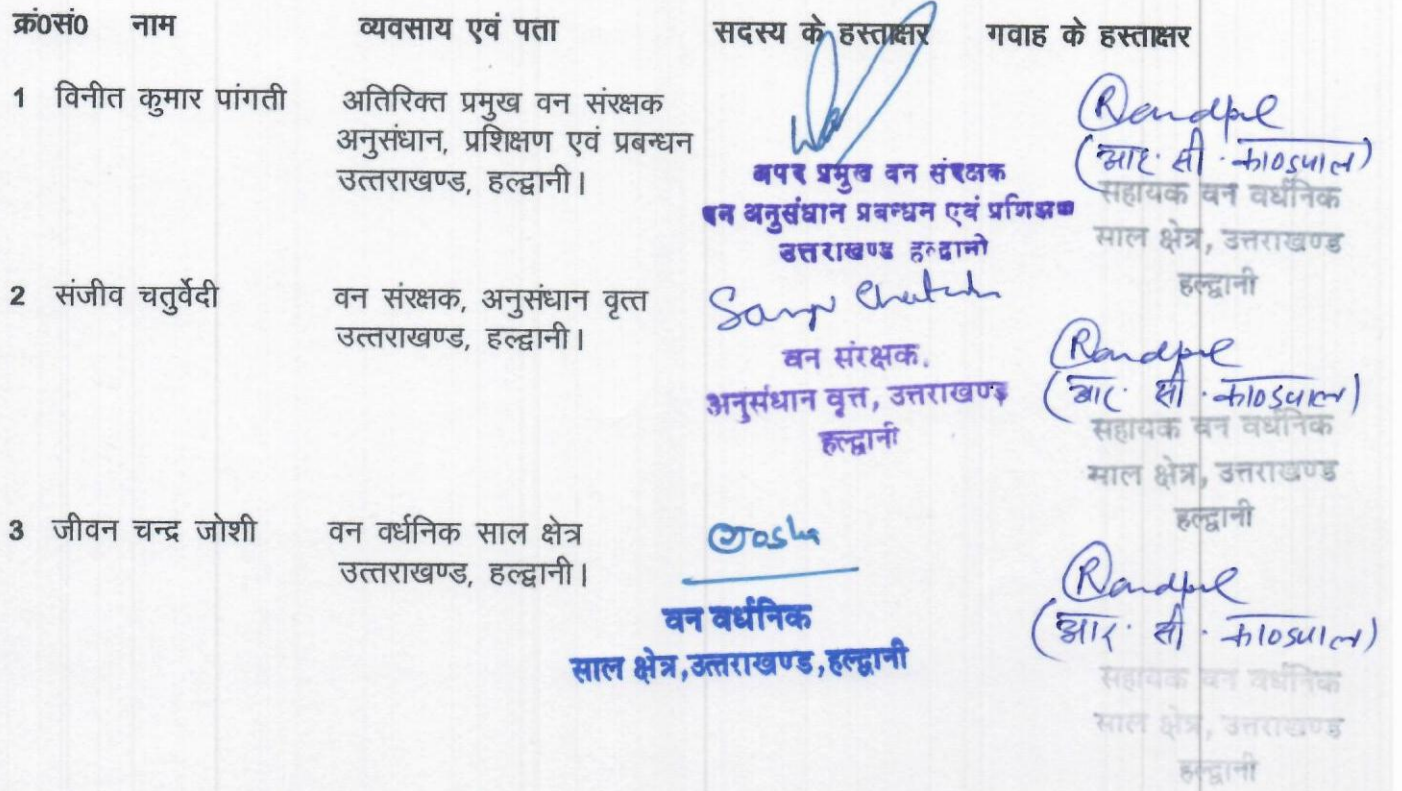 क्रं0सं0 नाम व्यवसाय एवं पता सदस्य के हस्ताक्षर गवाह के हस्ताक्षर
1 विनीत कुमार पांगती अतिरिक्त प्रमुख वन संरक्षक
अनुसंधान, प्रशिक्षण एवं प्रबन्धन
उत्तराखण्ड, हल्द्वानी।
अपर प्रमुख वन संरक्षक
वन अनुसंधान प्रबन्धन एवं प्रशिक्षण
उत्तराखण्ड हल्द्वानी
(आर. सी. काण्डपाल)
सहायक वन वर्धनिक
साल क्षेत्र, उत्तराखण्ड
हल्द्वानी
2 संजीव चतुर्वेदी वन संरक्षक, अनुसंधान वृत्त
उत्तराखण्ड, हल्द्वानी।
वन संरक्षक,
अनुसंधान वृत्त, उत्तराखण्ड
हल्द्वानी
(आर. सी. काण्डपाल)
सहायक वन वर्धनिक
साल क्षेत्र, उत्तराखण्ड
हल्द्वानी
3 जीवन चन्द्र जोशी वन वर्धनिक साल क्षेत्र
उत्तराखण्ड, हल्द्वानी।
Joshi
वन वर्धनिक
साल क्षेत्र,उत्तराखण्ड,हल्द्वानी
(आर. सी. काण्डपाल)
सहायक वन वर्धनिक
साल क्षेत्र, उत्तराखण्ड
हल्द्वानी